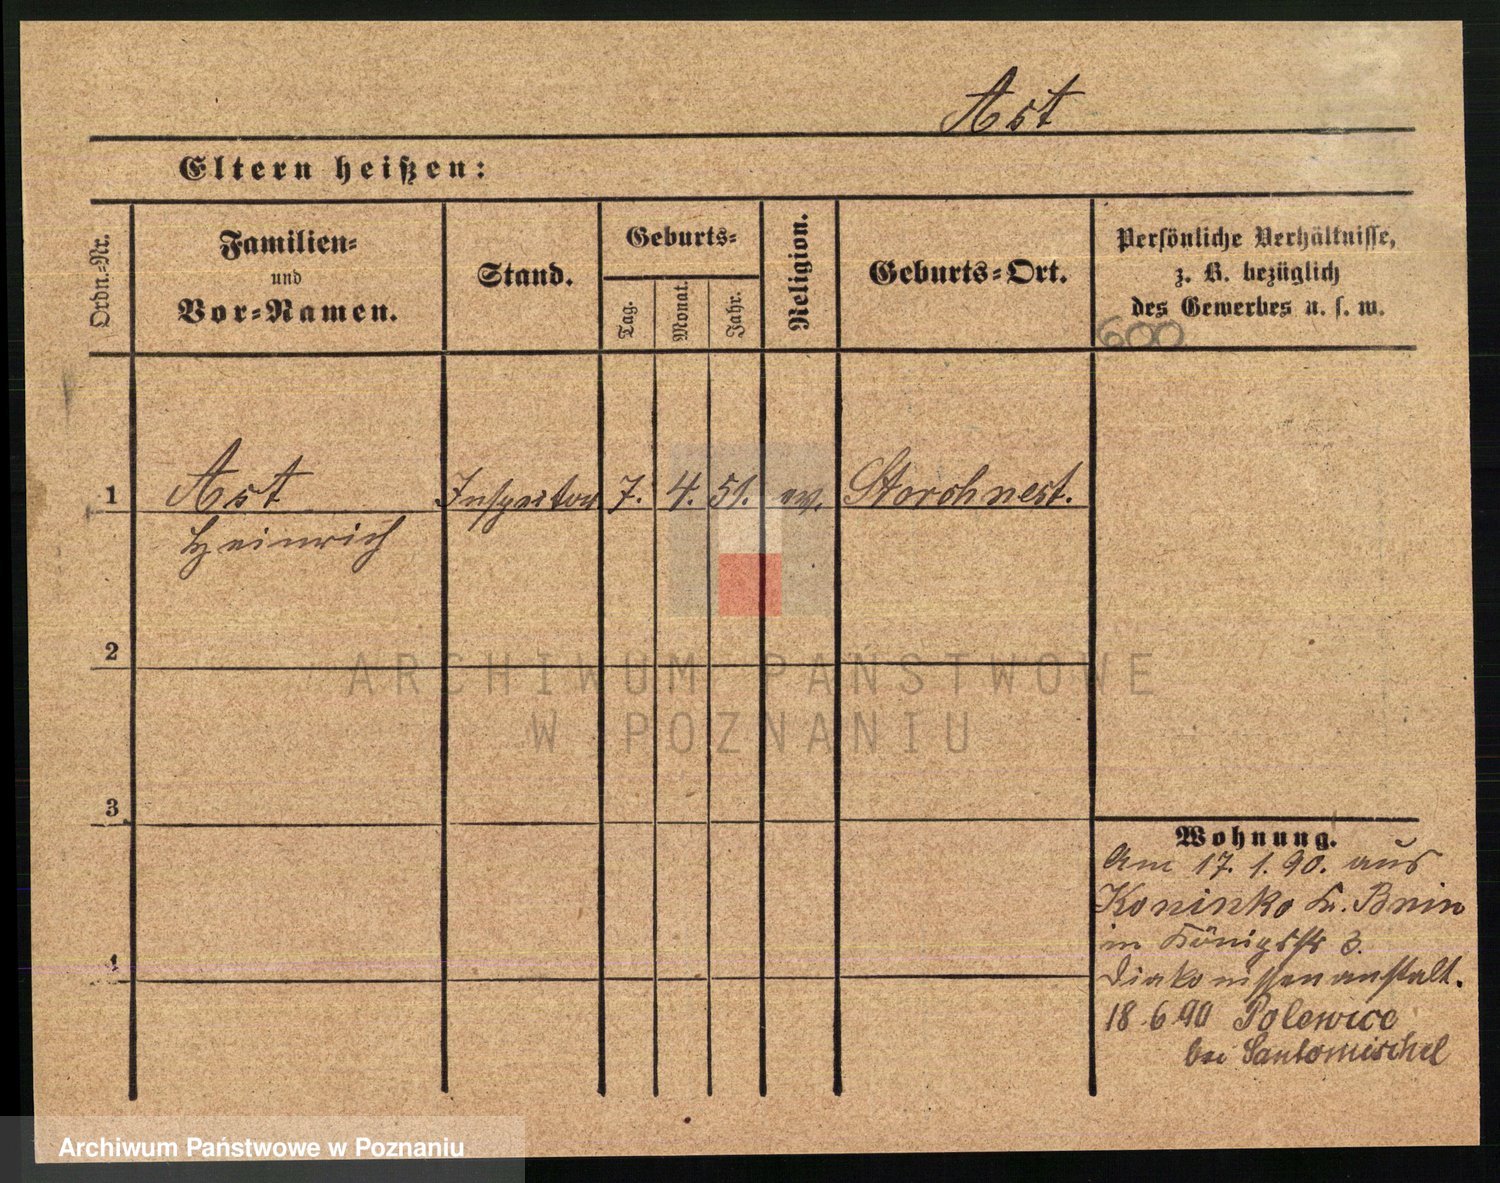 Ast
Eltern heißen:
Ordn.-Nr.
Familien-
und
Vor-Namen.
Stand.
Geburts-
Tag.
Monat.
Jahr.
Religion.
Geburts-Ort.
Persönliche Verhältnisse,
z. B. bezüglich
des Gewerbes u. s. w.
600
1 Ast Inspektor 7. 4. 51. ev. Storchnest.
Heinrich
2
3
4
Wohnung.
Am 17. 1. 90. aus
Koninko b. Bnin
in Königsstr 3.
Diakonissenanstalt.
18.6.90 Polewice
bei Santomischel
ARCHIWUM PAŃSTWOWE
W POZNANIU
Archiwum Państwowe w Poznaniu